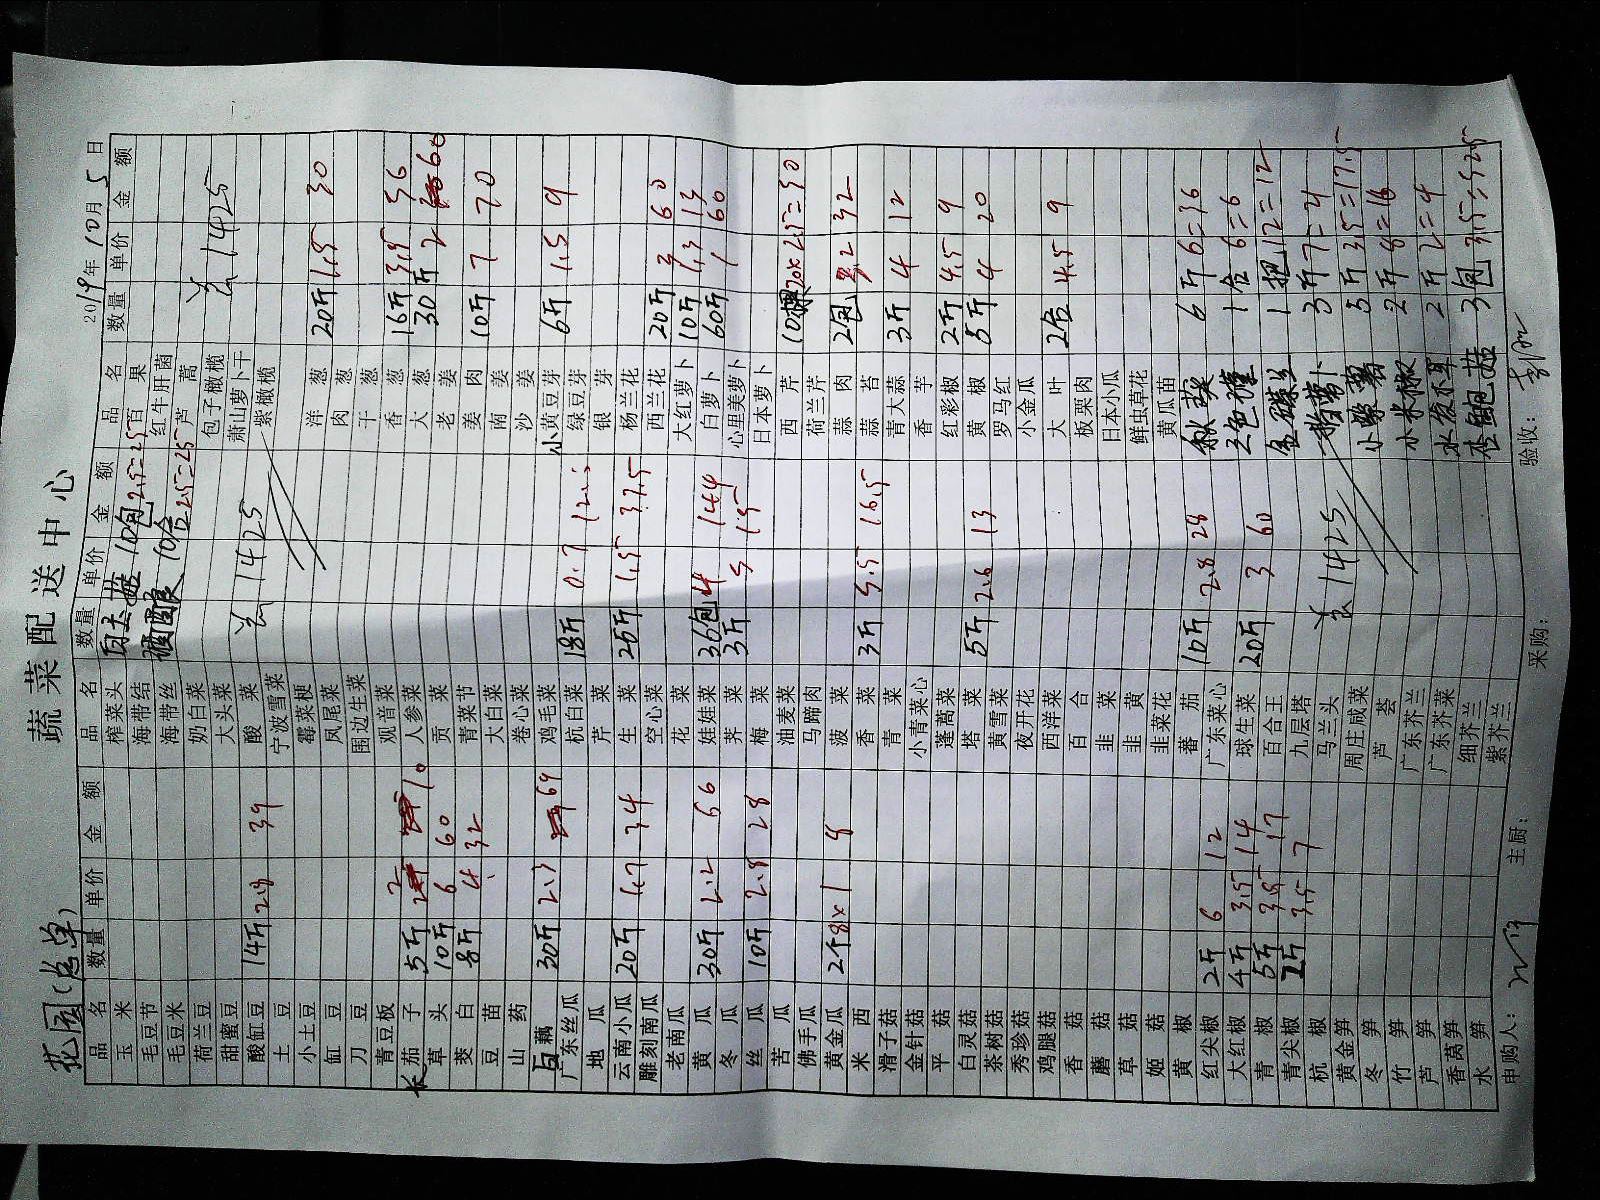 蔬菜配送中心
花园(总单)
2019年10月5日
品名 数量 单价 金额
玉米
毛豆节
毛豆米
荷兰豆
甜蜜豆
酸豇豆 14斤 2.8 39
土豆
小土豆
豇豆
刀豆
青豆板
长茄子 5斤 2 10
草头 10斤 6 60
茭白 8斤 4. 32
豆苗
山药
藕 30斤 2.3 69
广东丝瓜
地瓜
云南小瓜 20斤 1.7 34
雕刻南瓜
老南瓜
黄瓜 30斤 2.2 66
冬瓜
丝瓜 10斤 2.8 28
苦瓜
佛手瓜
黄金瓜 2个 8×1 8
米西
滑子菇
金针菇
平菇
白灵菇
茶树菇
秀珍菇
鸡腿菇
香菇
蘑菇
草菇
姬菇
黄椒
红尖椒 2斤 6 12
大红椒 4斤 3.5 14
青椒 5斤 3.5 17
青尖椒 2斤 3.5 7
杭椒
黄金笋
冬笋
竹笋
芦笋
香莴笋
水笋
品名 数量 单价 金额
榨菜头 白玉菇 10包 2.5=25
海带结 10合 2.5=25
海带丝
奶白菜
大头菜
酸菜 共1425
宁波雪菜
霉菜梗
凤尾菜
围边生菜
观音菜
人参菜
贡菜
青菜节
大白菜
卷心菜
鸡毛菜
杭白菜 18斤 0.7 12.
芹菜
生菜 25斤 1.5 37.5
空心菜
花菜
娃娃菜 36包 4 144
荠菜 3斤 5 15
梅菜
油麦菜
马蹄肉
菠菜
香菜 3斤 5.5 16.5
青菜
小青菜心
蓬蒿菜
塔菜 5斤 2.6 13
黄雪菜
夜开花
西洋菜
百合
韭菜
韭黄
韭菜花
番茄 10斤 2.8 28
广东菜心
球生菜 20斤 3 60
百合王
九层塔
马兰头 共1425
周庄咸菜
芦荟
广东芥兰
广东芥菜
细芥兰
紫芥兰
品名 数量 单价 金额
百果
红牛肝菌
芦蒿
包子橄榄 共1425
萧山萝卜干
紫橄榄
洋葱 20斤 1.5 30
肉葱
干葱
香葱 16斤 3.5 56
大葱 30斤 2 60
老姜
姜肉 10斤 7 70
南姜
沙姜
小黄豆芽 6斤 1.5 9
绿豆芽
银芽
杨兰花
西兰花 20斤 3 60
大红萝卜 10斤 1.3 13
白萝卜 60斤 1 60
心里美萝卜
日本萝卜
西芹 10棵 20×2.5=50
荷兰芹
蒜肉 2包 32
蒜苔
青大蒜 3斤 4 12
香芋
红彩椒 2斤 4.5 9
黄椒 5斤 4 20
罗马红
小金瓜
大叶 2合 4.5 9
板栗肉
日本小瓜
鲜虫草花
黄瓜苗
秋葵 6斤 6=36
三色堇 1合 6=6
金碟兰 1把 12=12
指萝卜 3斤 7=21
小紫薯 5斤 3.5=17.5
小米椒 2斤 8=16
水发木耳 2斤 2=4
杏鲍菇 3包 3.5=52.5
申购人: 主厨: 采购: 验收: